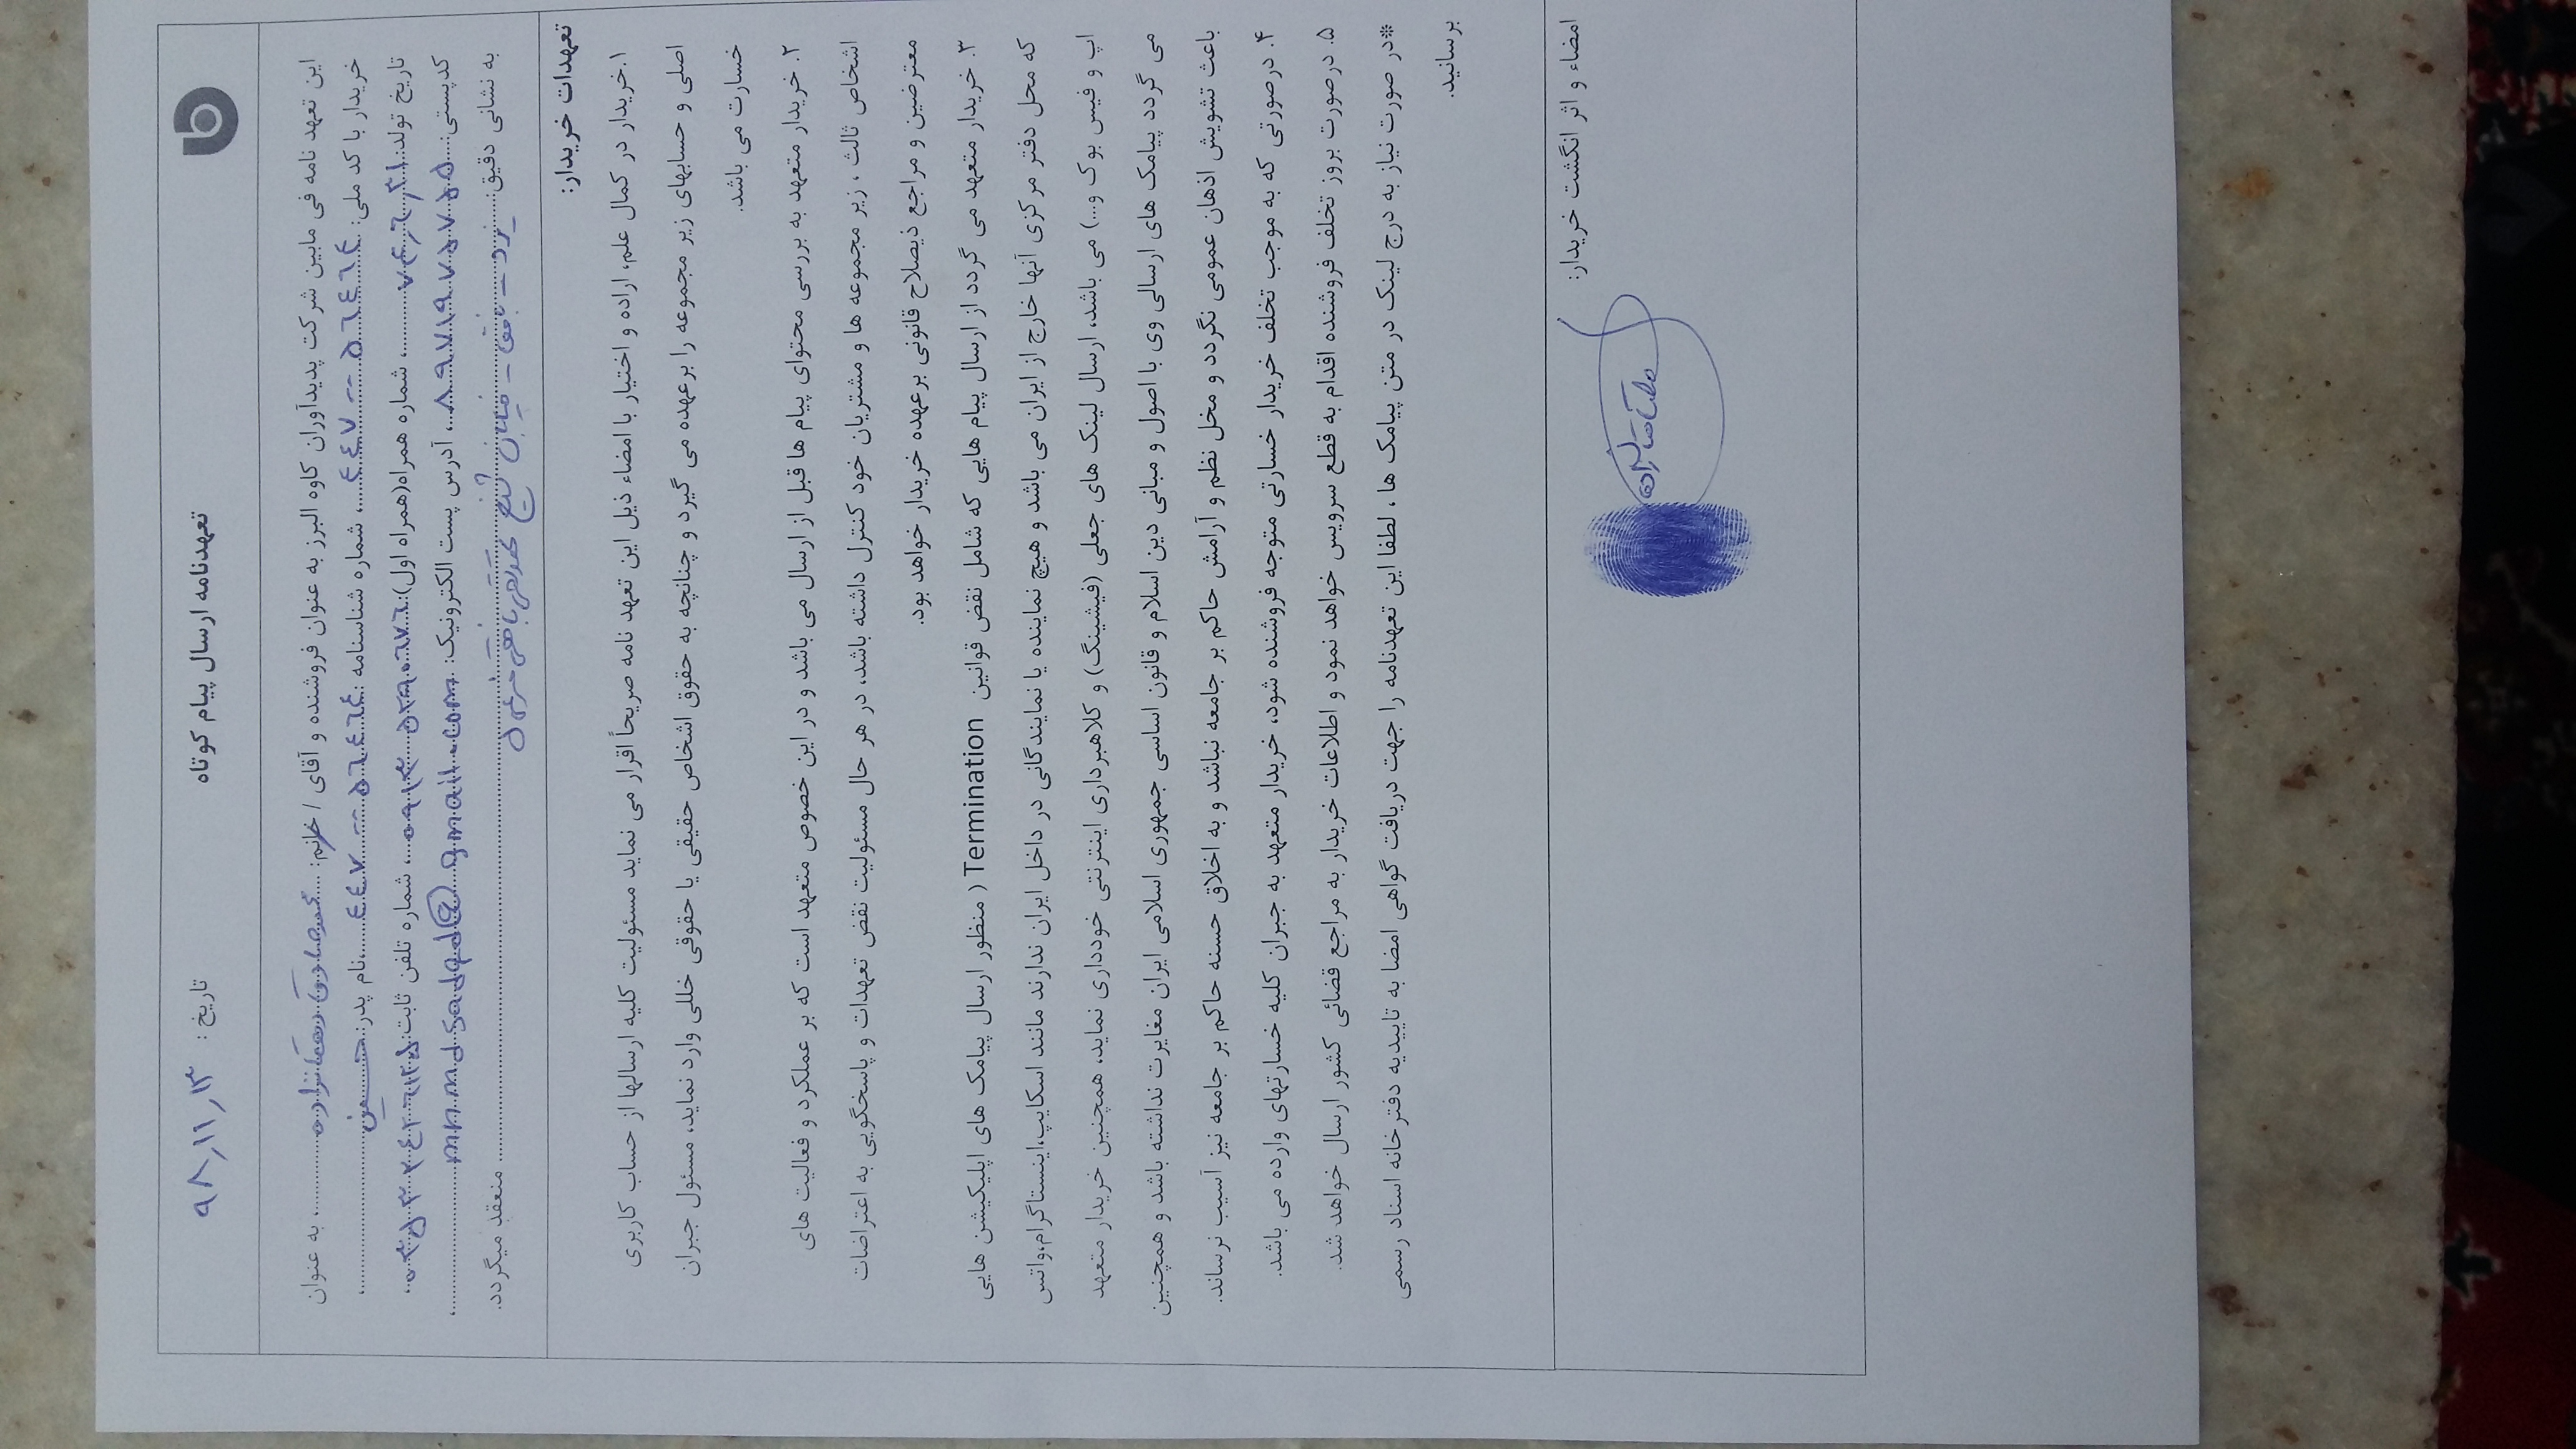 تعهدنامه ارسال پیام کوتاه
تاریخ : ۹۸/۱۱/۱۳
این تعهد نامه فی مابین شرکت پدیدآوران کاوه البرز به عنوان فروشنده و آقای / خانم: ....محمدصادق دهقان نژاد.... به عنوان
خریدار با کد ملی: ۴۴۷۰۰۵۶۴۶۴ ، شماره شناسنامه : ۴۴۷۰۰۵۶۴۶۴ ، نام پدر: حسین ،
تاریخ تولد: ۷۴/۶/۳۱ ، شماره همراه(همراه اول): ۰۹۱۳۵۳۸۰۶۷۶ ، شماره تلفن ثابت: ،
کدپستی: ۸۹۷۱۹۷۵۷۵۵ ، آدرس پست الکترونیک: mhmd.sadqd@gmail.com ،
به نشانی دقیق: یزد - بافق - خیابان شیخ محمدتقی بافقی منعقد میگردد.
تعهدات خریدار:
۱.خریدار در کمال علم، اراده و اختیار با امضاء ذیل این تعهد نامه صریحاً اقرار می نماید مسئولیت کلیه ارسالها از حساب کاربری
اصلی و حسابهای زیر مجموعه را برعهده می گیرد و چنانچه به حقوق اشخاص حقیقی یا حقوقی خللی وارد نماید، مسئول جبران
خسارت می باشد.
۲. خریدار متعهد به بررسی محتوای پیام ها قبل از ارسال می باشد و در این خصوص متعهد است که بر عملکرد و فعالیت های
اشخاص ثالث ، زیر مجموعه ها و مشتریان خود کنترل داشته باشد، در هر حال مسئولیت نقض تعهدات و پاسخگویی به اعتراضات
معترضین و مراجع ذیصلاح قانونی برعهده خریدار خواهد بود.
۳. خریدار متعهد می گردد از ارسال پیام هایی که شامل نقض قوانین Termination ( منظور ارسال پیامک های اپلیکیشن هایی
که محل دفتر مرکزی آنها خارج از ایران می باشد و هیچ نماینده یا نمایندگانی در داخل ایران ندارند مانند اسکایپ،اینستاگرام،واتس
اپ و فیس بوک و...) می باشد، ارسال لینک های جعلی (فیشینگ) و کلاهبرداری اینترنتی خودداری نماید، همچنین خریدار متعهد
می گردد پیامک های ارسالی وی با اصول و مبانی دین اسلام و قانون اساسی جمهوری اسلامی ایران مغایرت نداشته باشد و همچنین
باعث تشویش اذهان عمومی نگردد و مخل نظم و آرامش حاکم بر جامعه نباشد و به اخلاق حسنه حاکم بر جامعه نیز آسیب نرساند.
۴. درصورتی که به موجب تخلف خریدار خسارتی متوجه فروشنده شود، خریدار متعهد به جبران کلیه خسارتهای وارده می باشد.
۵. درصورت بروز تخلف فروشنده اقدام به قطع سرویس خواهد نمود و اطلاعات خریدار به مراجع قضائی کشور ارسال خواهد شد.
*در صورت نیاز به درج لینک در متن پیامک ها ، لطفا این تعهدنامه را جهت دریافت گواهی امضا به تاییدیه دفترخانه اسناد رسمی
برسانید.
امضاء و اثر انگشت خریدار: